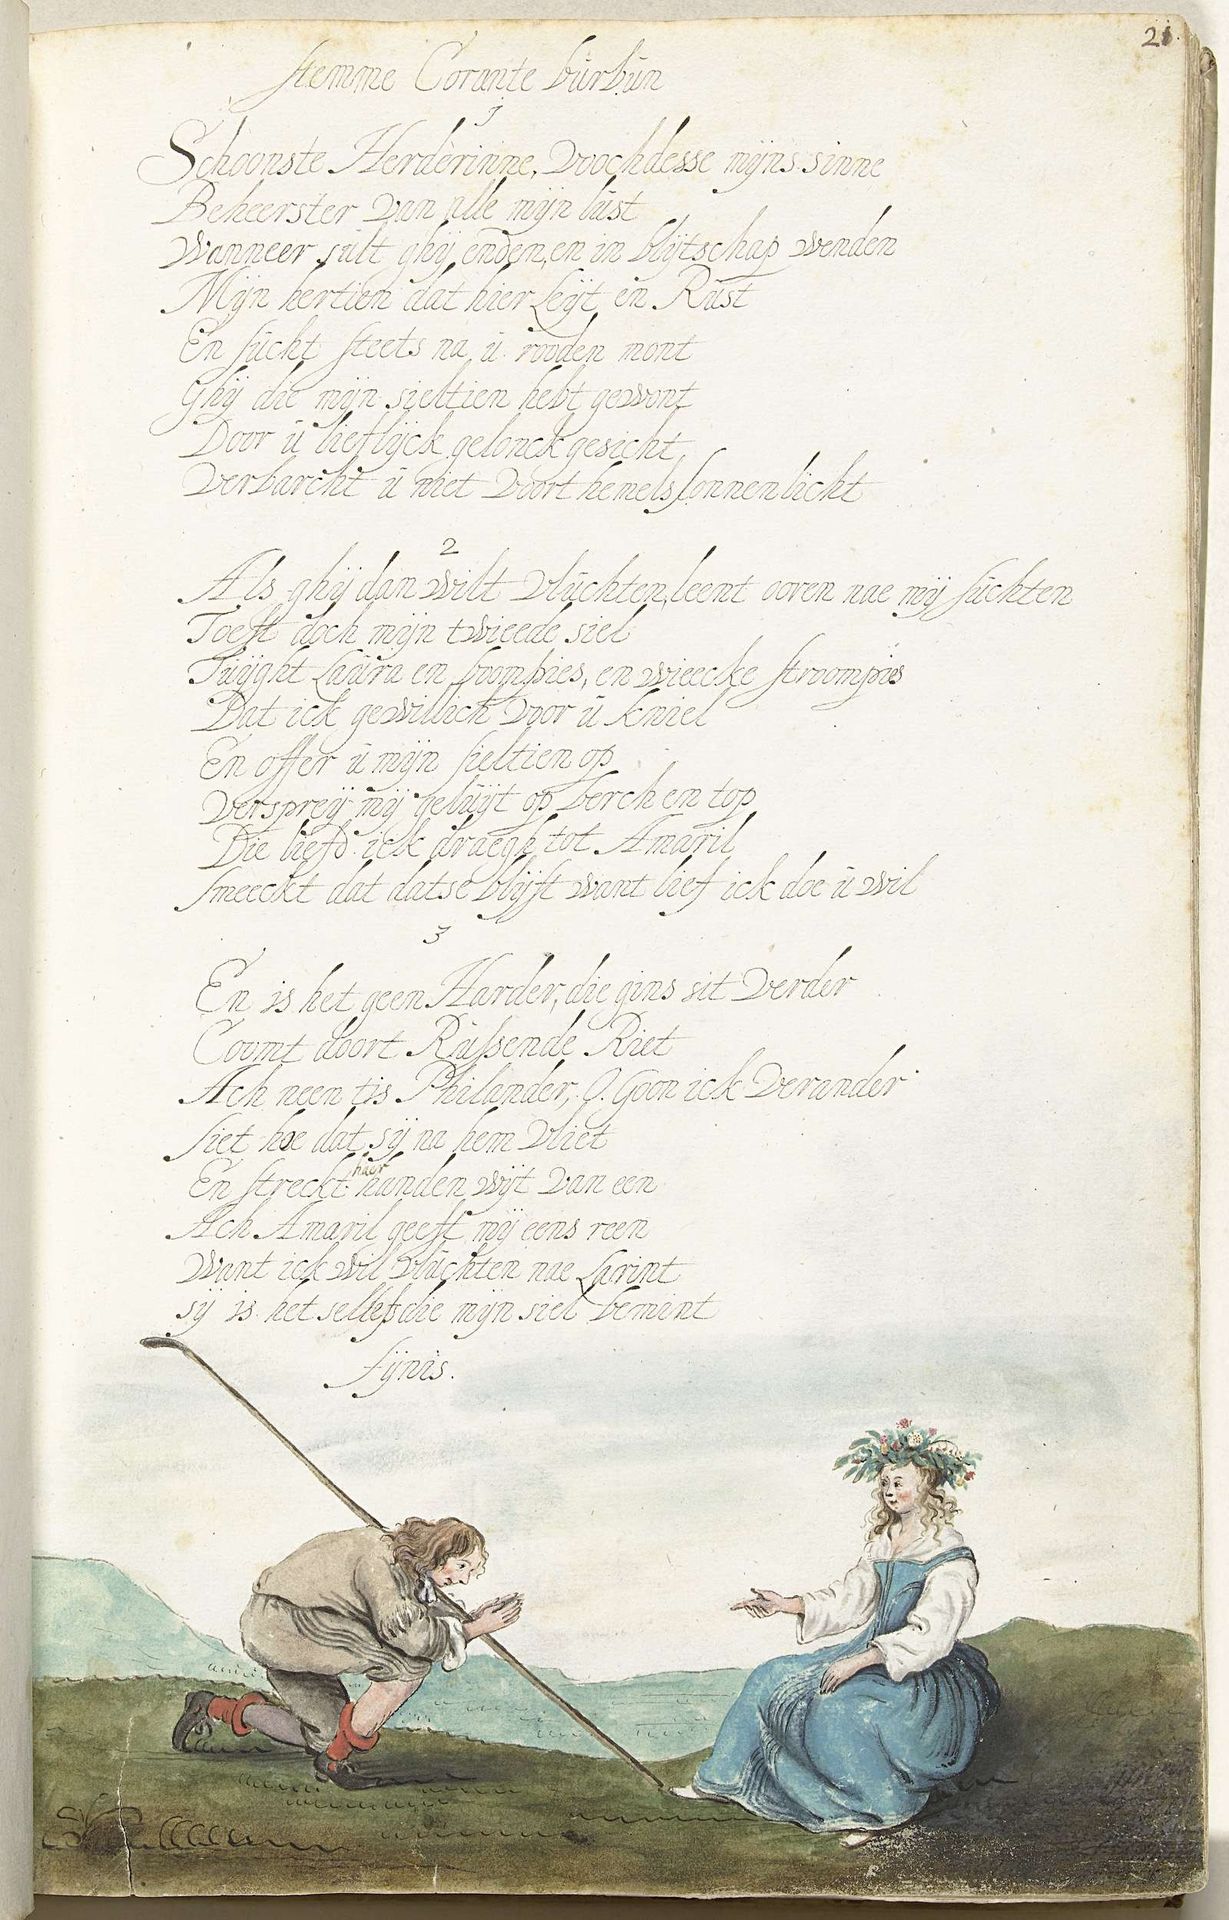 21.
stemme Corante bùrbùn
1
Schoonste Herderinne, Voochdesse mijns sinne
Beheerster Van alle mijn lùst
Wanneer sùlt ghij enden, en in blijtschap wenden
Mijn hertien dat hier Leijt en Rùst
En sùcht steets na ù rooden mont
Ghij die mijn sieltien hebt gewont
Door ù lieflijck gelonck gesicht
Verbarcht ù niet Voort hemels sonnen licht
2
Als ghij dan wilt Vlùchten, leent ooren nae mij sùchten
Toeft doch mijn twieede siel
Tùijght Laùra en boompies, en wieecke stroompies
Dat ick gewillich Voor ù kniel
En offer ù mijn sieltien op
Verspreij mij gelùijt op berch en top
Die liefd ick draegh tot Amaril
smeeckt dat datse blijft want lief ick doe ù wil
3
En is het geen Harder, die gins sit Verder
Coomt doort Rùssende Riet
Ach neen tis Philander, O Goon ick Verander
siet hoe dat sij na hem Vliet
En streckt haer handen wijt Van een
Ach Amaril geeft mij eens reen
Want ick wil Vlùchten nae Larint
sij is het selfs die mijn siel bemint
fijnis.